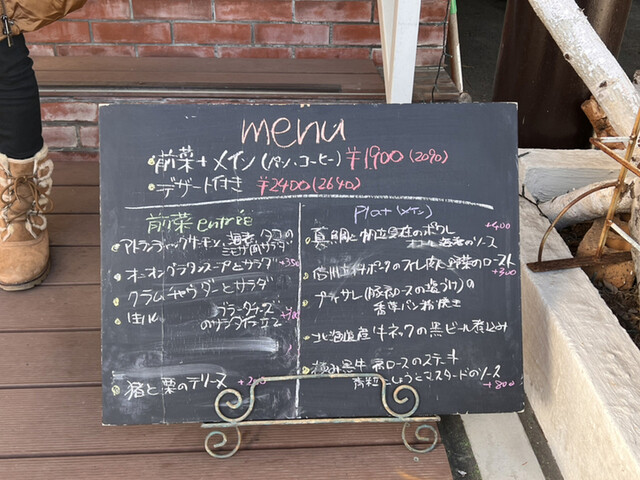 menu
・前菜+メイン(パン、コーヒー) ¥1,900(2090)
・デザート付き ¥2400(2640)
前菜 entrée
アトランティックサーモン、海老、タコの
ミモザ風サラダ
オニオングラタンスープとサラダ +350
クラムチャウダーとサラダ
生ハム ブラータチーズ
のサラダ仕立て
猪と栗のテリーヌ +200
Plat (メイン)
真鯛と帆立 のポワレ +400
のソース
信州 ポークのフィレ肉と野菜のロースト +300
プティサレ(豚肩ロースの塩づけ)の
香草パン粉焼き
北海道産 牛ネックの黒ビール煮込み
黒牛 肩ロースのステーキ
こしょうとマスタードのソース +800